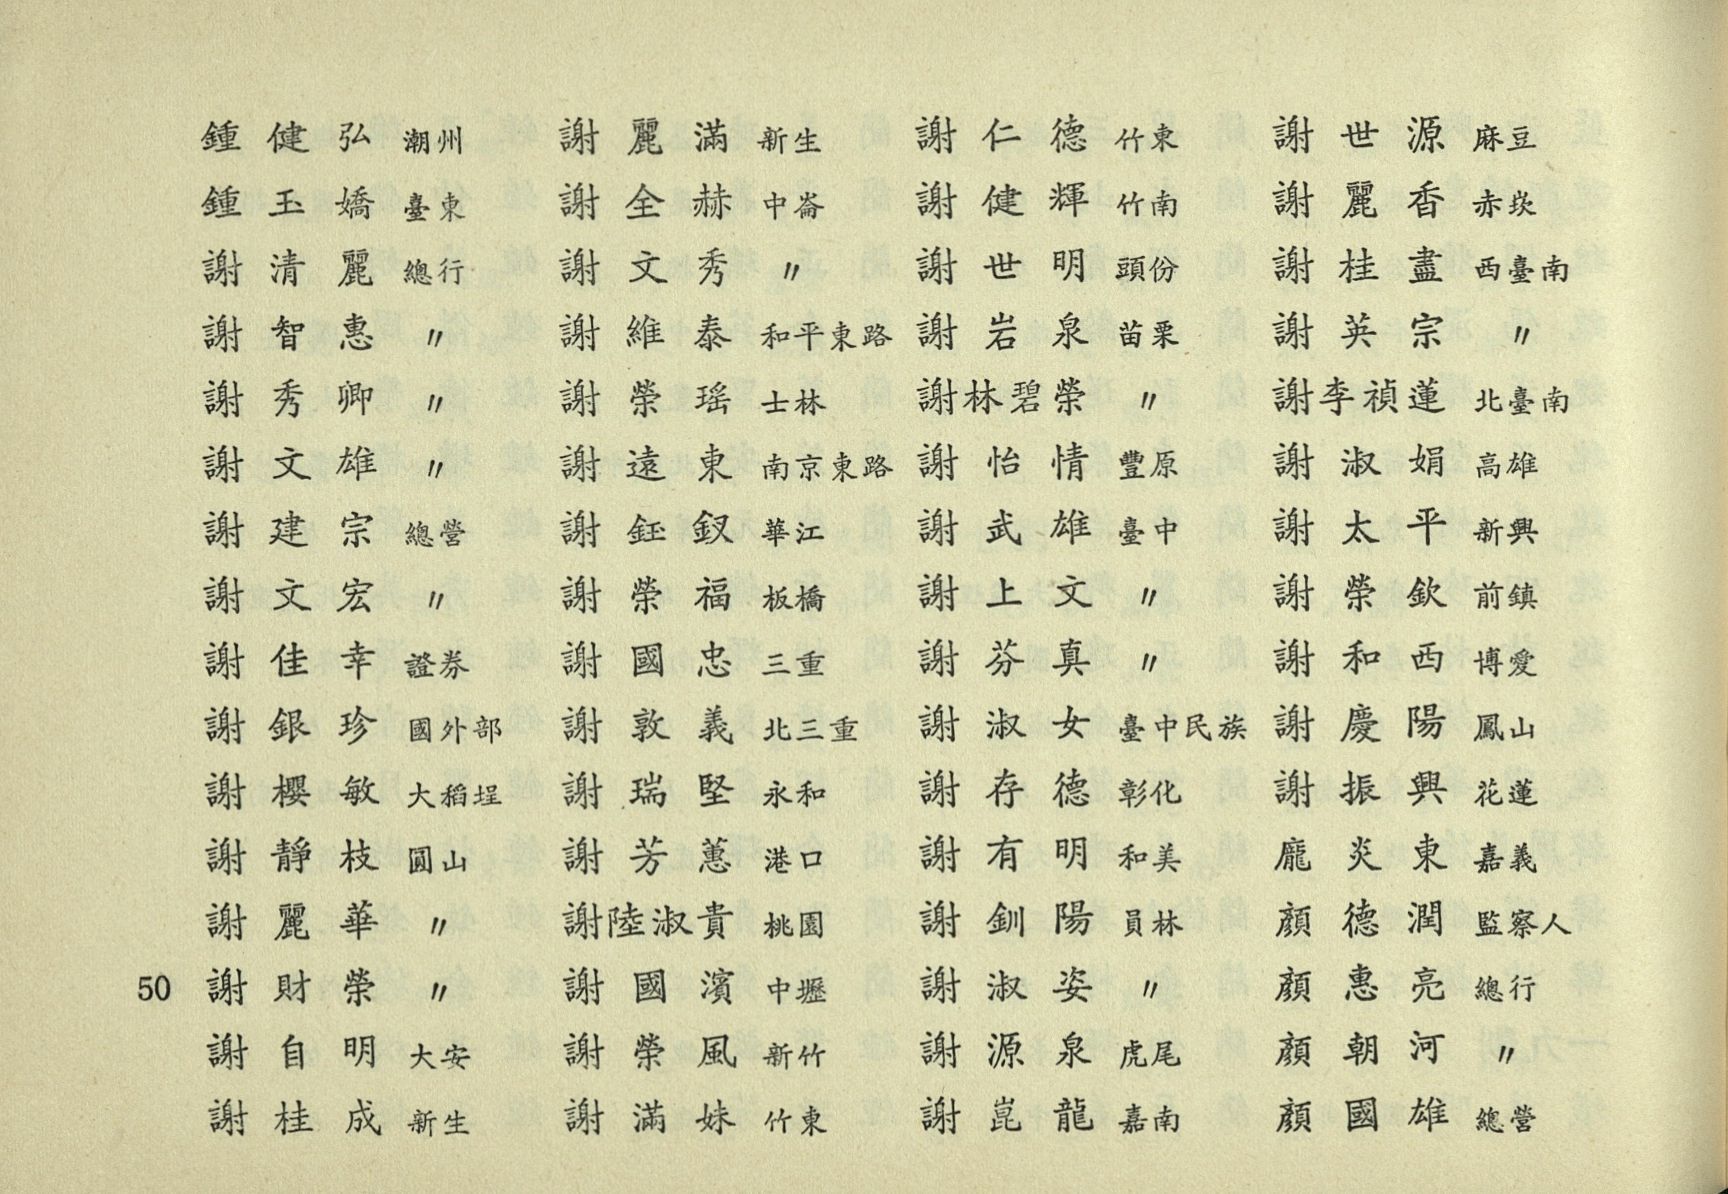 鍾健弘 潮州
鍾玉嬌 臺東
謝清麗 總行
謝智惠 〃
謝秀卿 〃
謝文雄 〃
謝建宗 總營
謝文宏 〃
謝佳幸 證券
謝銀珍 國外部
謝櫻敏 大稻埕
謝靜枝 圓山
謝麗華 〃
謝財榮 〃
謝自明 大安
謝桂成 新生
謝麗滿 新生
謝全赫 中崙
謝文秀 〃
謝維泰 和平東路
謝榮瑶 士林
謝遠東 南京東路
謝鈺釵 華江
謝榮福 板橋
謝國忠 三重
謝敦義 北三重
謝瑞堅 永和
謝芳蕙 港口
謝陸淑貴 桃園
謝國濱 中壢
謝榮風 新竹
謝滿妹 竹東
謝仁德 竹東
謝健輝 竹南
謝世明 頭份
謝岩泉 苗栗
謝林碧榮 〃
謝怡情 豐原
謝武雄 臺中
謝上文 〃
謝芬真 〃
謝淑女 臺中民族
謝存德 彰化
謝有明 和美
謝釧陽 員林
謝淑姿 〃
謝源泉 虎尾
謝崑龍 嘉南
謝世源 麻豆
謝麗香 赤崁
謝桂盡 西臺南
謝英宗 〃
謝李禎蓮 北臺南
謝淑娟 高雄
謝太平 新興
謝榮欽 前鎮
謝和西 博愛
謝慶陽 鳳山
謝振興 花蓮
龐炎東 嘉義
顏德潤 監察人
顏惠亮 總行
顏朝河 〃
顏國雄 總營
50